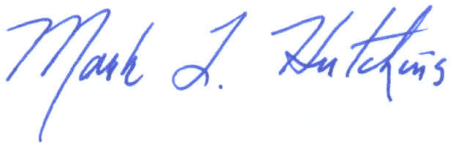 Mark L. Hutchins